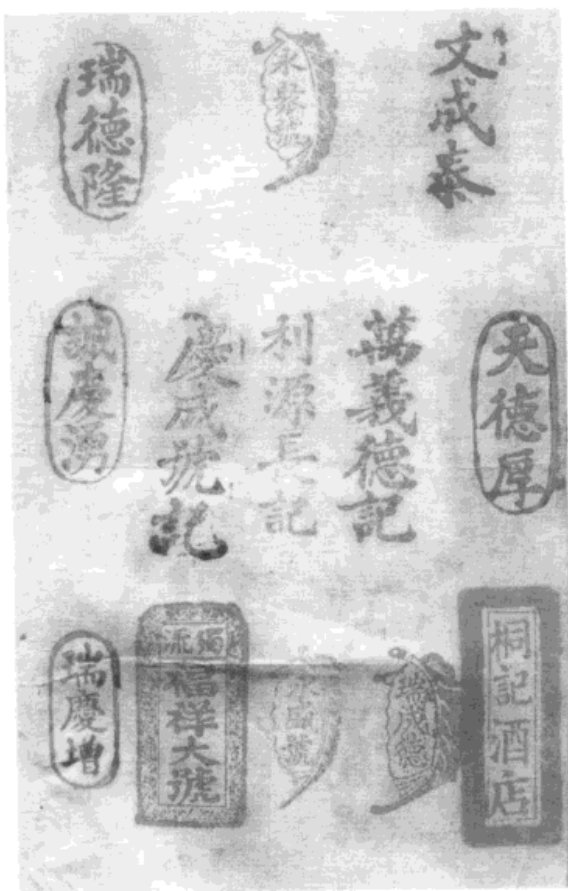 文成泰
永發號
瑞德隆
天德厚
萬義德記
利源長記
慶成號記
慶湧
桐記酒店
瑞成德
永盛號
獨流
福祥大號
瑞慶增